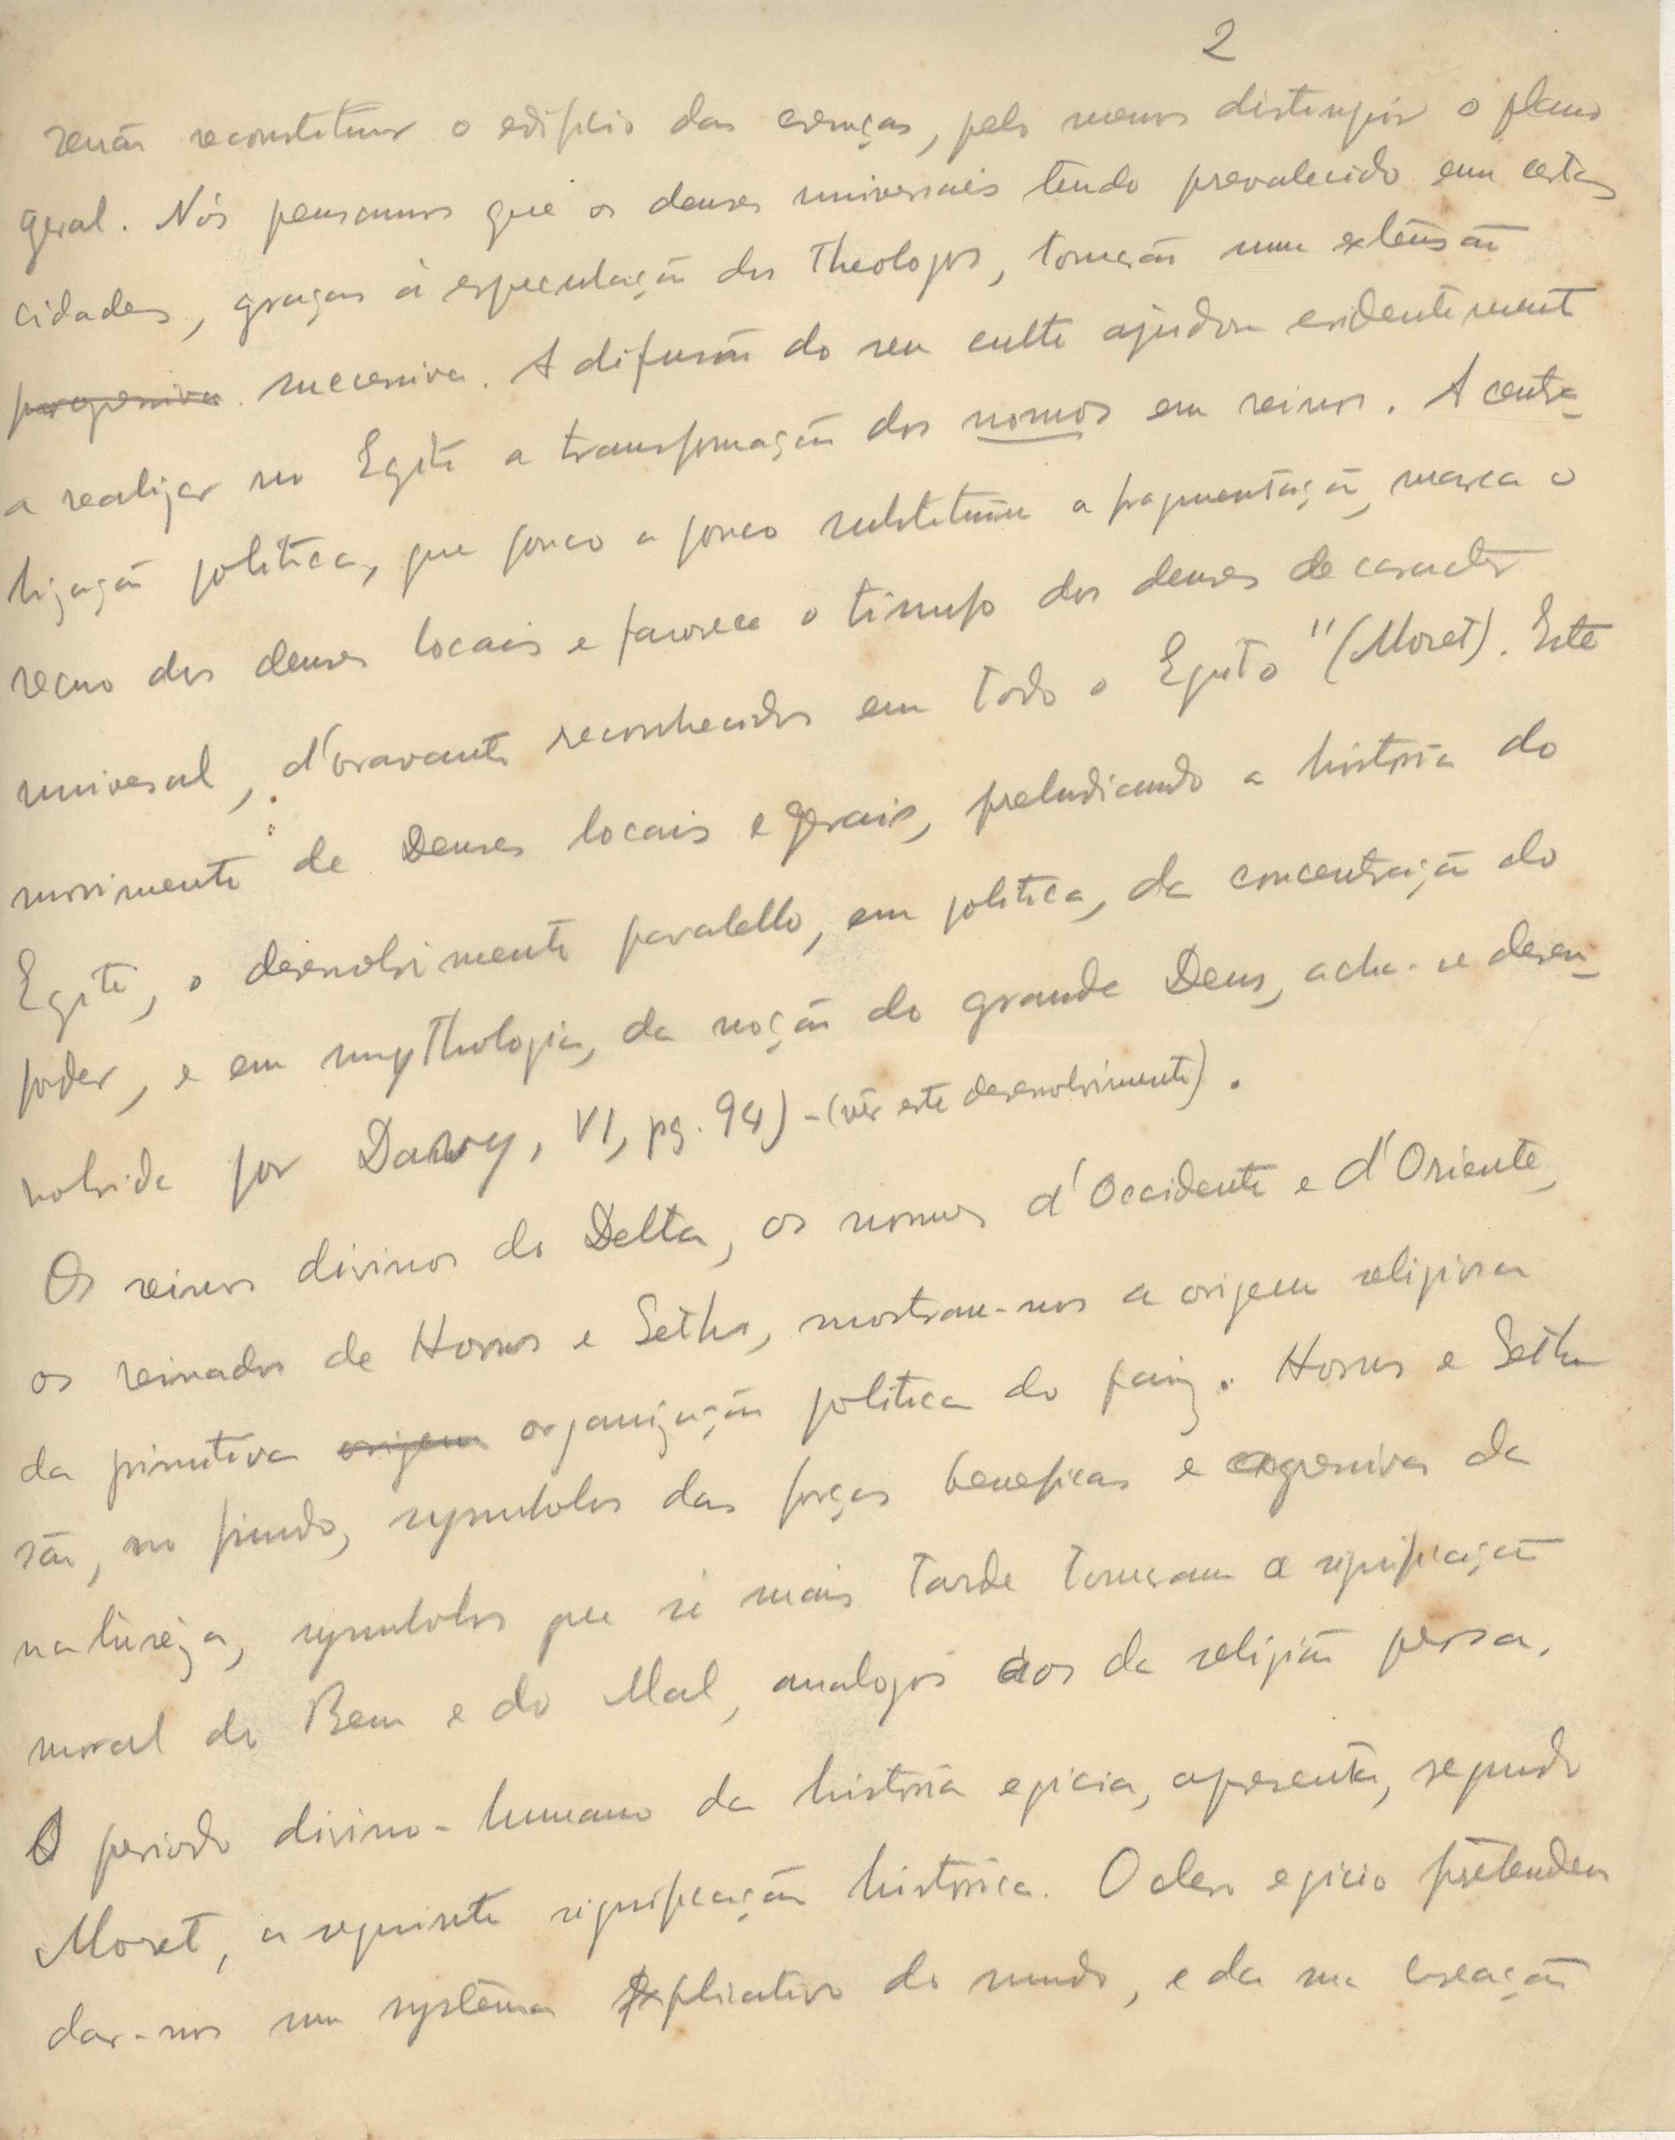 2
senão reconstituir o edificio das crenças, pelo menos distinguir o plano
geral. Nós pensamos que os deuses universais tendo prevalecido em certas
cidades, graças á especulação dos Theologos, tomarão uma extensão
progressiva successiva. A difusão do seu culto ajudou evidentement
a realizar no Egito a transformação dos nomos em reinos. A centra-
lização politica, que pouco a pouco substituiu a fragmentação, marca o
recuo dos deuses locais e favorece o triunfo dos deuses de caracter
universal, d'oravante reconhecidos em todo o Egito" (Moret). Este
movimento de Deuses locais e gerais, preludiando a história do
Egito, o desenvolvimento paralello, em politica, da concentração do
poder, e em mythologia, da noção do grande Deus, acha-se desen-
volvida por Davy, VI, pg. 94) - (vêr este desenvolvimento).
Os reinos divinos do Delta, os nomos d'Occidente e d'Oriente,
os reinados de Horus e Seth, mostram-nos a origem religiosa
da primitiva origem organização politica do paiz. Horus e Seth
são, no fundo, symbolos das forças beneficas e agressivas da
naturêza, symbolos que só mais tarde tomaram a significação
moral do Bem e do Mal, analogos aos da religião persa.
O periodo divino-humano da história egicia, apresenta, segundo
Moret, a seguinte significação histórica. O clero egicio pretendeu
dar-nos um systêma explicativo do mundo, e da sua creação